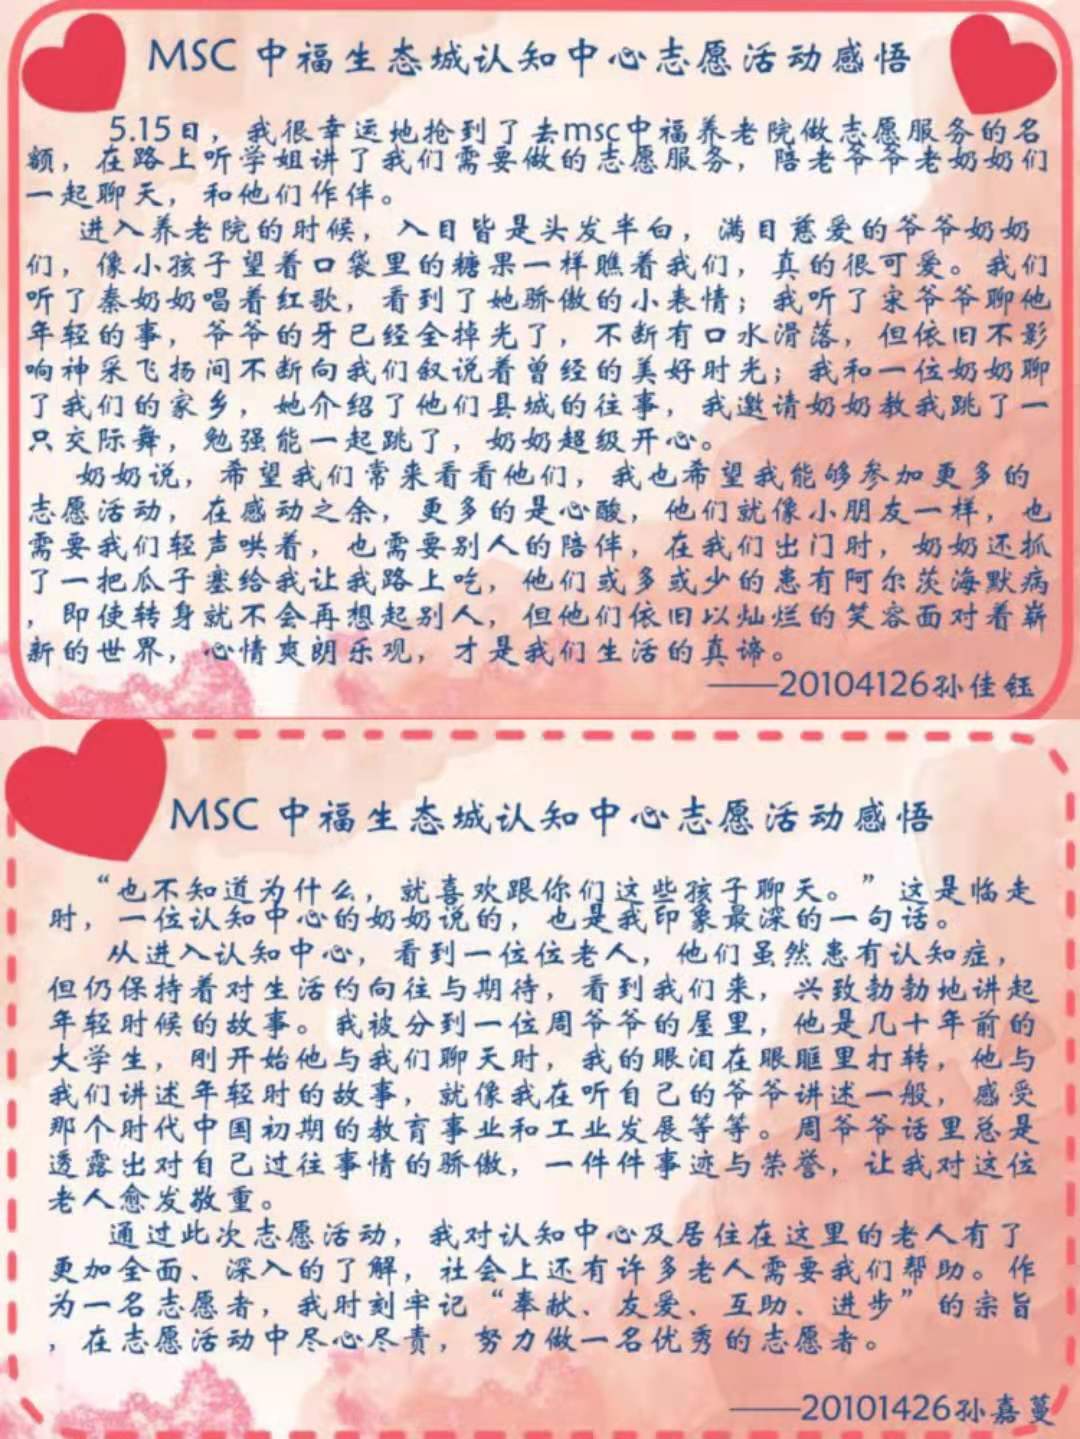 MSC 中福生态城认知中心志愿活动感悟
5.15日，我很幸运地抢到了去msc中福养老院做志愿服务的名
额，在路上听学姐讲了我们需要做的志愿服务，陪老爷爷老奶奶们
一起聊天，和他们作伴。
进入养老院的时候，入目皆是头发半白，满目慈爱的爷爷奶奶
们，像小孩子望着口袋里的糖果一样瞧着我们，真的很可爱。我们
听了秦奶奶唱着红歌，看到了她骄傲的小表情；我听了宋爷爷聊他
年轻的事，爷爷的牙已经全掉光了，不断有口水滑落，但依旧不影
响神采飞扬间不断向我们叙说着曾经的美好时光；我和一位奶奶聊
了我们的家乡，她介绍了他们县城的往事，我邀请奶奶教我跳了一
只交际舞，勉强能一起跳了，奶奶超级开心。
奶奶说，希望我们常来看看他们，我也希望我能够参加更多的
志愿活动，在感动之余，更多的是心酸，他们就像小朋友一样，也
需要我们轻声哄着，也需要别人的陪伴，在我们出门时，奶奶还抓
了一把瓜子塞给我让我路上吃，他们或多或少的患有阿尔茨海默病
，即使转身就不会再想起别人，但他们依旧以灿烂的笑容面对着崭
新的世界，心情爽朗乐观，才是我们生活的真谛。
——20104126孙佳钰
MSC 中福生态城认知中心志愿活动感悟
“也不知道为什么，就喜欢跟你们这些孩子聊天。”这是临走
时，一位认知中心的奶奶说的，也是我印象最深的一句话。
从进入认知中心，看到一位位老人，他们虽然患有认知症，
但仍保持着对生活的向往与期待，看到我们来，兴致勃勃地讲起
年轻时候的故事。我被分到一位周爷爷的屋里，他是几十年前的
大学生，刚开始他与我们聊天时，我的眼泪在眼眶里打转，他与
我们讲述年轻时的故事，就像我在听自己的爷爷讲述一般，感受
那个时代中国初期的教育事业和工业发展等等。周爷爷话里总是
透露出对自己过往事情的骄傲，一件件事迹与荣誉，让我对这位
老人愈发敬重。
通过此次志愿活动，我对认知中心及居住在这里的老人有了
更加全面、深入的了解，社会上还有许多老人需要我们帮助。作
为一名志愿者，我时刻牢记“奉献、友爱、互助、进步”的宗旨
，在志愿活动中尽心尽责，努力做一名优秀的志愿者。
——20101426孙嘉蔓